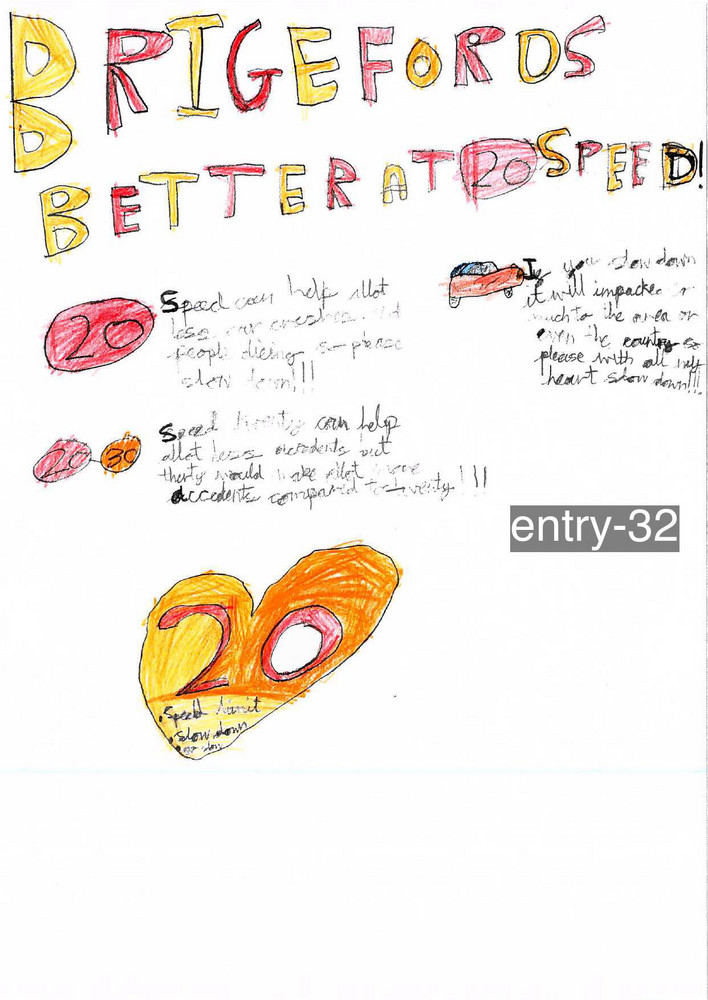 BRIGEFORDS
BETTER AT 20 SPEED!
20
Speed can help allot
less car crashes
people dieing so please
slow down!!!
If you slow down
it will impacked
much to the area or
even the country so
please with all my
heart slow down!!!
20 30
Speed twenty can help
allot less accedents but
therty would make allot more
accedents compared to twenty!!!
entry-32
20
Speed limit
slow down
go slow